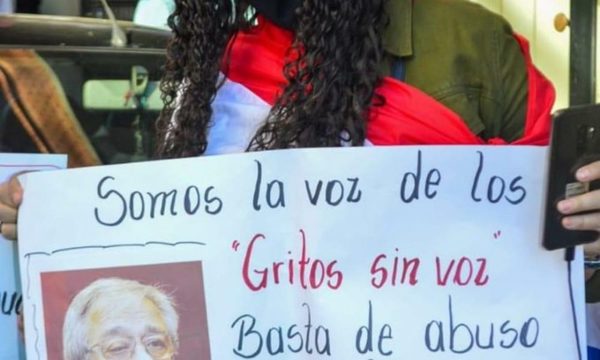 Somos la voz de los
"Gritos sin voz"
Basta de abuso